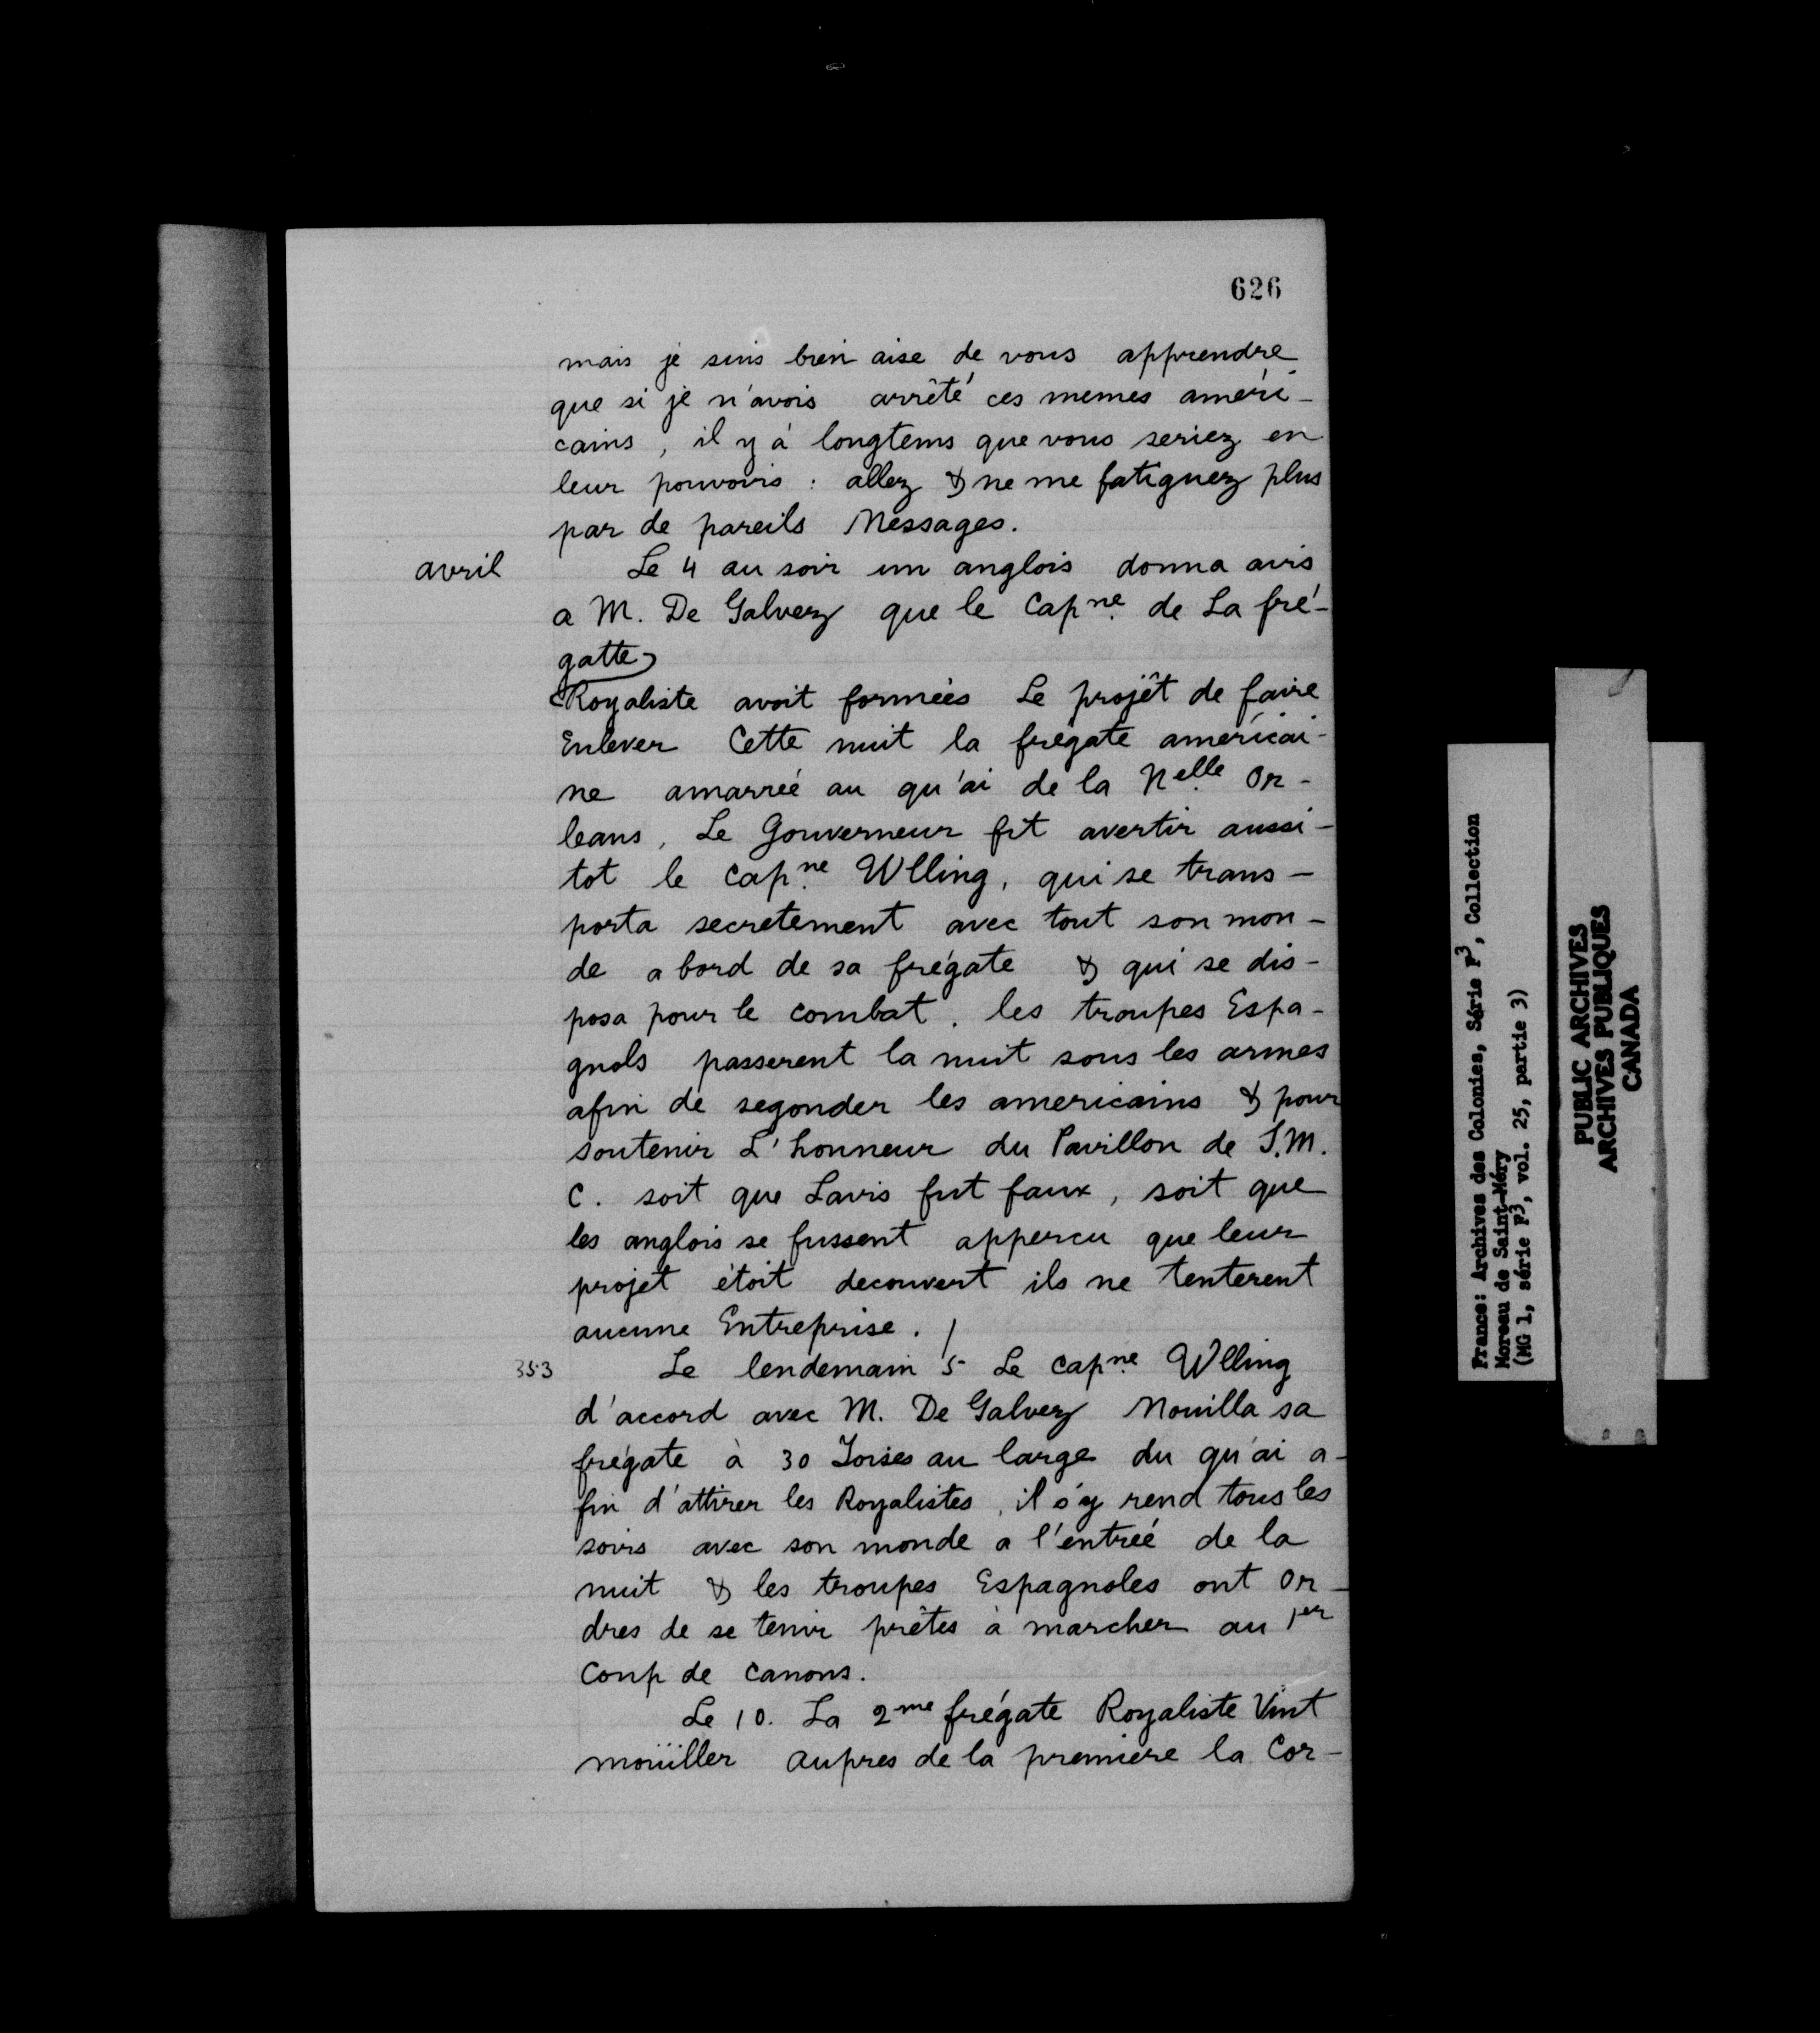 626
mais je suis bien aise de vous apprendre
que si je n'avois arrêté ces memes améri-
cains, il y à longtems que vous seriez en
leur pouvoirs : allez & ne me fatiguez plus
par de pareils Messages.
avril
Le 4 au soir un anglois donna avis
a M. De Galvez que le Capne. de La fré-
gatte
Royaliste avoit formées Le projêt de faire
Enlever Cette nuit la frégate américai-
ne amarreé au qu'ai de la Nelle. Or-
leans, Le Gouverneur fit avertir aussi-
tot le Capne. Wlling, qui se trans-
porta secretement avec tout son mon-
de a bord de sa frégate & qui se dis-
posa pour le combat. les troupes Espa-
gnols passerent la nuit sous les armes
afin de segonder les americains & pour
soutenir L'honneur du Pavillon de S.M.
C. soit que Lavis fut faux, soit que
les anglois se fussent appercu que leur
projet étoit decouvert ils ne tenterent
aucune Entreprise. /
353
Le lendemain 5 Le capne. Wlling
d'accord avec M. De Galvez Mouilla sa
frégate à 30 Toises au large du qu'ai a-
fin d'attirer les Royalistes, il s'y rend tous les
soirs avec son monde a l'entreé de la
nuit & les troupes Espagnoles ont Or-
dres de se tenir prêtes à marcher au 1er
Coup de canons.
Le 10. La 2me frégate Royaliste Vint
moüiller aupres de la premiere la Cor-
France: Archives des Colonies, Série F3, Collection
Moreau de Saint-Méry
(MG 1, série F3, vol. 25, partie 3)
PUBLIC ARCHIVES
ARCHIVES PUBLIQUES
CANADA